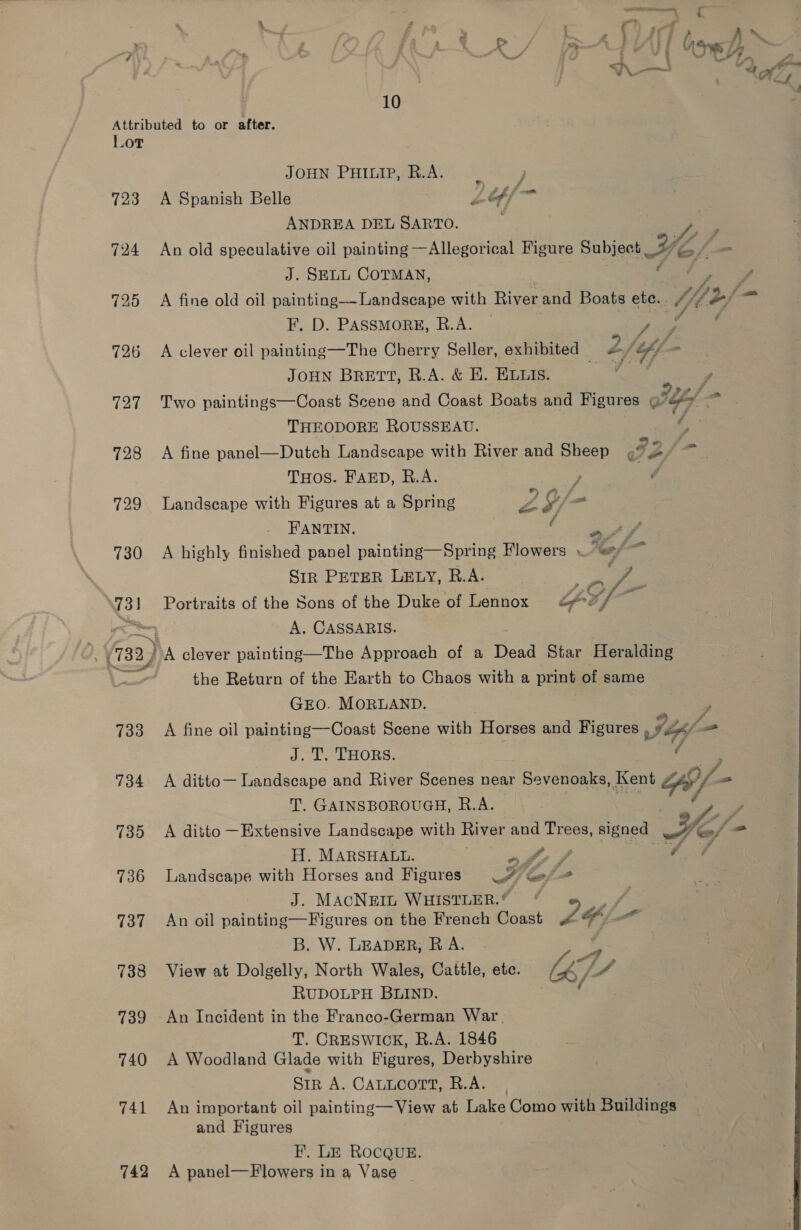 10
Attributed to or after.
Lot
JOHN PHILIP, R.A.
723 A Spanish Belle
ANDREA DEL SARTO.
724 An old speculative oil painting—Allegorical Figure Subject
J. SELL COTMAN,
725 A fine old oil painting—Landscape with River and Boats etc.
F. D. PASSMORE, R.A.
726 A clever oil painting—The Cherry Seller, exhibited
JOHN BRETT, R.A. & E. ELLIS.
727 Two paintings—Coast Scene and Coast Boats and Figures
THEODORE ROUSSEAU.
728 A fine panel—Dutch Landscape with River and Sheep
THOS. FAED, R.A.
729 Landscape with Figures at a Spring
FANTIN.
730 A highly finished panel painting—Spring Flowers
SIR PETER LELY, R.A.
731 Portraits of the Sons of the Duke of Lennox
A. CASSARIS.
732 A clever painting—The Approach of a Dead Star Heralding
the Return of the Earth to Chaos with a print of same
GEO. MORLAND.
733 A fine oil painting—Coast Scene with Horses and Figures
J. T. THORS.
734 A ditto—Landscape and River Scenes near Sevenoaks, Kent
T. GAINSBOROUGH, R.A.
735 A ditto—Extensive Landscape with River and Trees, signed
H. MARSHALL.
736 Landscape with Horses and Figures
J. MACNEIL WHISTLER.
737 An oil painting—Figures on the French Coast
B. W. LEADER, R A.
738 View at Dolgelly, North Wales, Cattle, etc.
RUDOLPH BLIND.
739 An Incident in the Franco-German War.
T. CRESWICK, R.A. 1846
740 A Woodland Glade with Figures, Derbyshire
SIR A. CALLCOTT, R.A.
741 An important oil painting—View at Lake Como with Buildings
and Figures
F. LE ROCQUE.
742 A panel—Flowers in a Vase